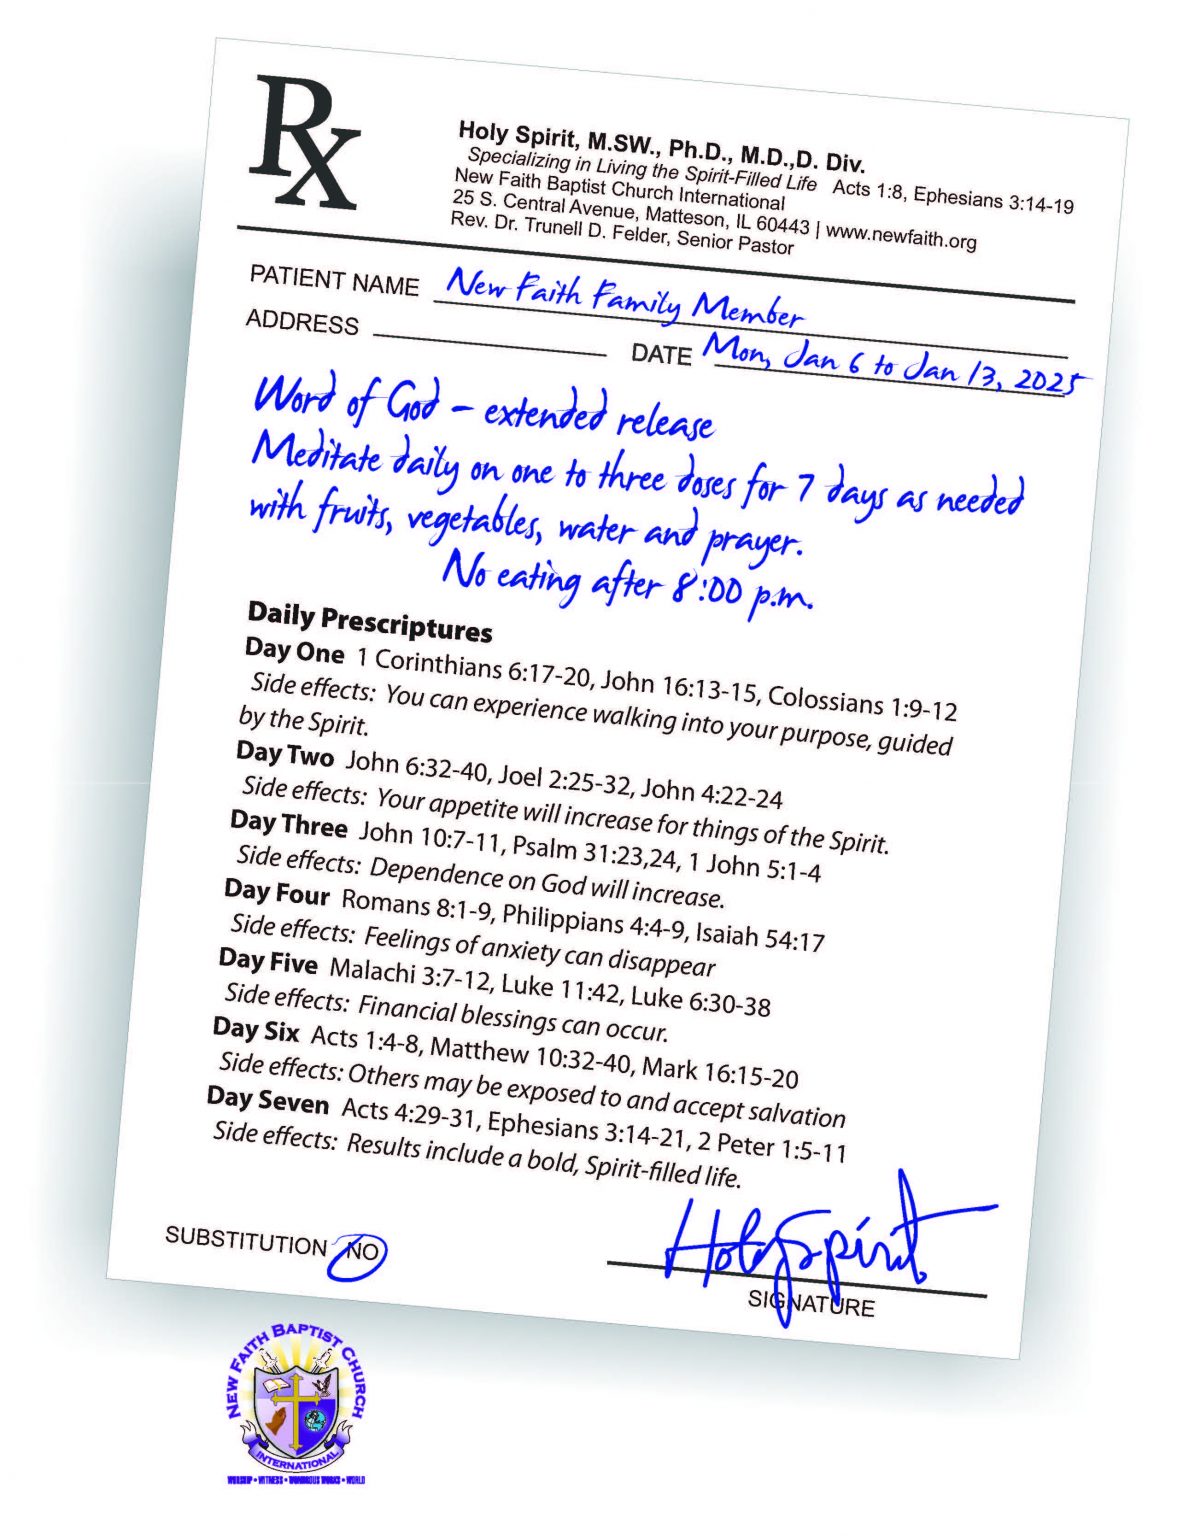 Rx
Holy Spirit, M.SW., Ph.D., M.D.,D. Div.
Specializing in Living the Spirit-Filled Life Acts 1:8, Ephesians 3:14-19
New Faith Baptist Church International
25 S. Central Avenue, Matteson, IL 60443 | www.newfaith.org
Rev. Dr. Trunell D. Felder, Senior Pastor
PATIENT NAME New Faith Family Member
ADDRESS DATE Mon, Jan 6 to Jan 13, 2025
Word of God – extended release
Meditate daily on one to three doses for 7 days as needed
with fruits, vegetables, water and prayer.
No eating after 8:00 p.m.
Daily Prescriptures
Day One 1 Corinthians 6:17-20, John 16:13-15, Colossians 1:9-12
Side effects: You can experience walking into your purpose, guided
by the Spirit.
Day Two John 6:32-40, Joel 2:25-32, John 4:22-24
Side effects: Your appetite will increase for things of the Spirit.
Day Three John 10:7-11, Psalm 31:23,24, 1 John 5:1-4
Side effects: Dependence on God will increase.
Day Four Romans 8:1-9, Philippians 4:4-9, Isaiah 54:17
Side effects: Feelings of anxiety can disappear
Day Five Malachi 3:7-12, Luke 11:42, Luke 6:30-38
Side effects: Financial blessings can occur.
Day Six Acts 1:4-8, Matthew 10:32-40, Mark 16:15-20
Side effects: Others may be exposed to and accept salvation
Day Seven Acts 4:29-31, Ephesians 3:14-21, 2 Peter 1:5-11
Side effects: Results include a bold, Spirit-filled life.
SUBSTITUTION NO
Holy Spirit
SIGNATURE
NEW FAITH BAPTIST CHURCH
INTERNATIONAL
WORSHIP • WITNESS • WONDROUS WORKS • WORLD